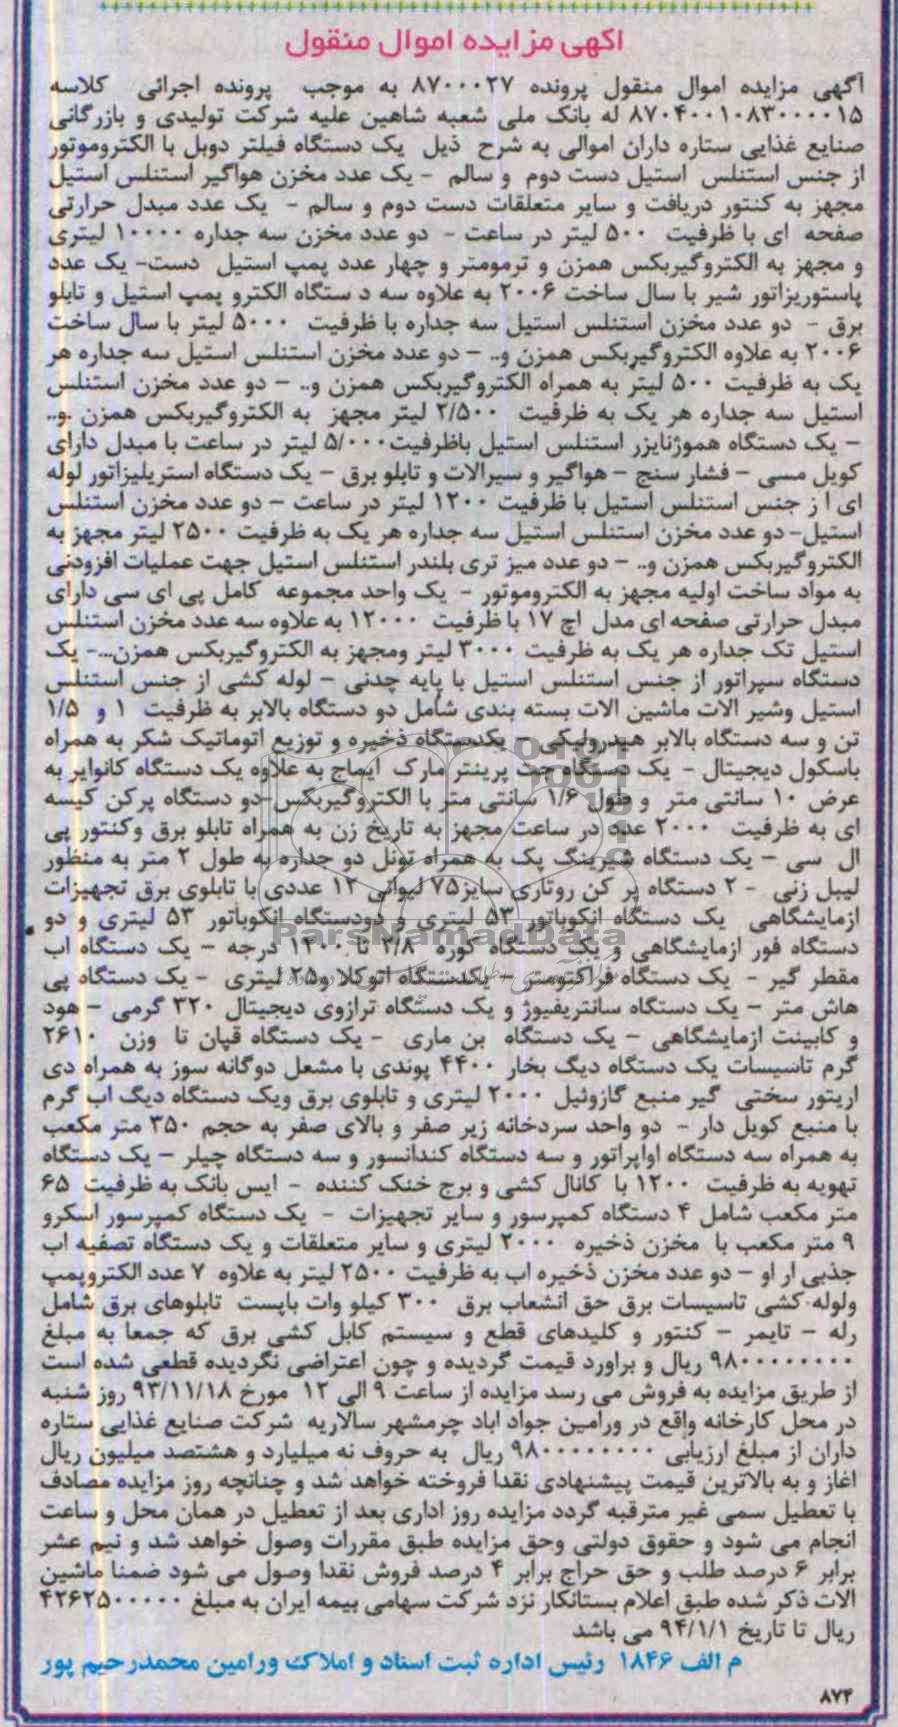 اگهی مزایده اموال منقول
آگهی مزایده اموال منقول پرونده ۸۷۰۰۰۲۷ به موجب پرونده اجرائی کلاسه
۸۷۰۴۰۰۱۰۸۳۰۰۰۰۱۵ له بانک ملی شعبه شاهین علیه شرکت تولیدی و بازرگانی
صنایع غذایی ستاره داران اموالی به شرح ذیل یک دستگاه فیلتر دوبل با الکتروموتور
از جنس استنلس استیل دست دوم و سالم - یک عدد مخزن هواگیر استنلس استیل
مجهز به کنتور دریافت و سایر متعلقات دست دوم و سالم - یک عدد مبدل حرارتی
صفحه ای با ظرفیت ۵۰۰ لیتر در ساعت - دو عدد مخزن سه جداره ۱۰۰۰۰ لیتری
و مجهز به الکتروگیربکس همزن و ترمومتر و چهار عدد پمپ استیل دست- یک عدد
پاستوریزاتور شیر با سال ساخت ۲۰۰۶ به علاوه سه د ستگاه الکترو پمپ استیل و تابلو
برق - دو عدد مخزن استنلس استیل سه جداره با ظرفیت ۵۰۰۰ لیتر با سال ساخت
۲۰۰۶ به علاوه الکتروگیربکس همزن و.. - دو عدد مخزن استنلس استیل سه جداره هر
یک به ظرفیت ۵۰۰ لیتر به همراه الکتروگیربکس همزن و.. - دو عدد مخزن استنلس
استیل سه جداره هر یک به ظرفیت ۲/۵۰۰ لیتر مجهز به الکتروگیربکس همزن و..
- یک دستگاه هموژنایزر استنلس استیل باظرفیت۵/۰۰۰ لیتر در ساعت با مبدل دارای
کویل مسی - فشار سنج - هواگیر و سیرالات و تابلو برق - یک دستگاه استریلیزاتور لوله
ای ا ز جنس استنلس استیل با ظرفیت ۱۲۰۰ لیتر در ساعت - دو عدد مخزن استنلس
استیل- دو عدد مخزن استنلس استیل سه جداره هر یک به ظرفیت ۲۵۰۰ لیتر مجهز به
الکتروگیربکس همزن و.. - دو عدد میز تری بلندر استنلس استیل جهت عملیات افزودنی
به مواد ساخت اولیه مجهز به الکتروموتور - یک واحد مجموعه کامل پی ای سی دارای
مبدل حرارتی صفحه ای مدل اچ ۱۷ با ظرفیت ۱۲۰۰۰ به علاوه سه عدد مخزن استنلس
استیل تک جداره هر یک به ظرفیت ۳۰۰۰ لیتر ومجهز به الکتروگیربکس همزن...- یک
دستگاه سپراتور از جنس استنلس استیل با پایه چدنی - لوله کشی از جنس استنلس
استیل وشیر الات ماشین الات بسته بندی شامل دو دستگاه بالابر به ظرفیت ۱ و ۱/۵
تن و سه دستگاه بالابر هیدرولیکی - یکدستگاه ذخیره و توزیع اتوماتیک شکر به همراه
باسکول دیجیتال - یک دستگاه جت پرینتر مارک ایماج به علاوه یک دستگاه کانوایر به
عرض ۱۰ سانتی متر و طول ۱/۶ سانتی متر با الکتروگیربکس-دو دستگاه پرکن کیسه
ای به ظرفیت ۲۰۰۰ عدد در ساعت مجهز به تاریخ زن به همراه تابلو برق وکنتور پی
ال سی - یک دستگاه شیرینگ پک به همراه تونل دو جداره به طول ۲ متر به منظور
لیبل زنی - ۲ دستگاه پر کن روتاری سایز۷۵ لیوانی ۱۲ عددی با تابلوی برق تجهیزات
ازمایشگاهی یک دستگاه انکوباتور ۵۳ لیتری و دودستگاه انکوباتور ۵۳ لیتری و دو
دستگاه فور ازمایشگاهی و یک دستگاه کوره ۲/۸ تا ۱۲۰۰ درجه - یک دستگاه اب
مقطر گیر - یک دستگاه فراکتومتر - یکدستگاه اتوکلاو ۲۵ لیتری - یک دستگاه پی
هاش متر - یک دستگاه سانتریفیوژ و یک دستگاه ترازوی دیجیتال ۳۲۰ گرمی - هود
و کابینت ازمایشگاهی - یک دستگاه بن ماری - یک دستگاه قپان تا وزن ۲۶۱۰
گرم تاسیسات یک دستگاه دیگ بخار ۴۴۰۰ پوندی با مشعل دوگانه سوز به همراه دی
اریتور سختی گیر منبع گازوئیل ۲۰۰۰ لیتری و تابلوی برق ویک دستگاه دیگ اب گرم
با منبع کویل دار - دو واحد سردخانه زیر صفر و بالای صفر به حجم ۳۵۰ متر مکعب
به همراه سه دستگاه اواپراتور و سه دستگاه کندانسور و سه دستگاه چیلر - یک دستگاه
تهویه به ظرفیت ۱۲۰۰ با کانال کشی و برج خنک کننده - ایس بانک به ظرفیت ۶۵
متر مکعب شامل ۴ دستگاه کمپرسور و سایر تجهیزات - یک دستگاه کمپرسور اسکرو
۹ متر مکعب با مخزن ذخیره ۲۰۰۰ لیتری و سایر متعلقات و یک دستگاه تصفیه اب
جذبی ار او - دو عدد مخزن ذخیره اب به ظرفیت ۲۵۰۰ لیتر به علاوه ۷ عدد الکتروپمپ
ولوله کشی تاسیسات برق حق انشعاب برق ۳۰۰ کیلو وات باپست تابلوهای برق شامل
رله - تایمر - کنتور و کلیدهای قطع و سیستم کابل کشی برق که جمعا به مبلغ
۹۸۰۰۰۰۰۰۰۰ ریال و براورد قیمت گردیده و چون اعتراضی نگردیده قطعی شده است
از طریق مزایده به فروش می رسد مزایده از ساعت ۹ الی ۱۲ مورخ ۹۳/۱۱/۱۸ روز شنبه
در محل کارخانه واقع در ورامین جواد اباد چرمشهر سالاریه شرکت صنایع غذایی ستاره
داران از مبلغ ارزیابی ۹۸۰۰۰۰۰۰۰۰ ریال به حروف نه میلیارد و هشتصد میلیون ریال
اغاز و به بالاترین قیمت پیشنهادی نقدا فروخته خواهد شد و چنانچه روز مزایده مصادف
با تعطیل سمی غیر مترقبه گردد مزایده روز اداری بعد از تعطیل در همان محل و ساعت
انجام می شود و حقوق دولتی وحق مزایده طبق مقررات وصول خواهد شد و نیم عشر
برابر ۶ درصد طلب و حق حراج برابر ۴ درصد فروش نقدا وصول می شود ضمنا ماشین
الات ذکر شده طبق اعلام بستانکار نزد شرکت سهامی بیمه ایران به مبلغ ۴۲۶۲۵۰۰۰۰۰
ریال تا تاریخ ۹۴/۱/۱ می باشد
م الف ۱۸۴۶ رئیس اداره ثبت اسناد و املاک ورامین محمدرحیم پور
۸۷۴
ParsNamadData